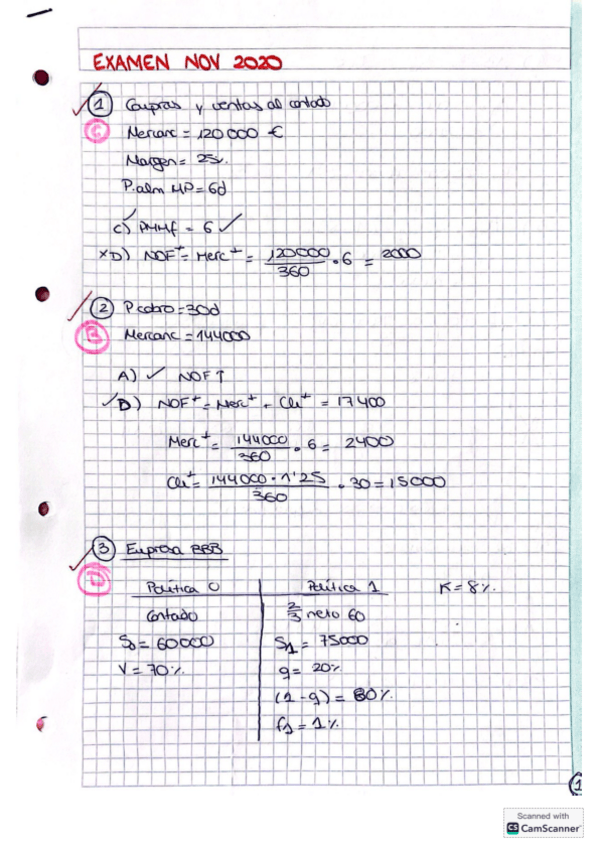 EXAMEN NOV 2020
① Compras y ventas al contado
C Mercanc = 120000 €
Margen = 25%
P.alm MP = 6d
C) PMMf = 6 ✓
×D) NOF⁺ = Merc⁺ = 120000/360 · 6 = 2000
② P cobro = 30d
B Mercanc = 144000
A) ✓ NOF↑
✓B) NOF⁺ = Merc⁺ + Cli⁺ = 17400
Merc⁺ = 144000/360 · 6 = 2400
Cli⁺ = 144000 · 1'25/360 · 30 = 15000
③ Empresa BBB
D Política 0 Política 1 K = 8%
Contado 2/3 neto 60
S₀ = 60000 S₁ = 75000
V = 70% g = 20%
(1-g) = 80%
f₁ = 1%
1
Scanned with
CS CamScanner